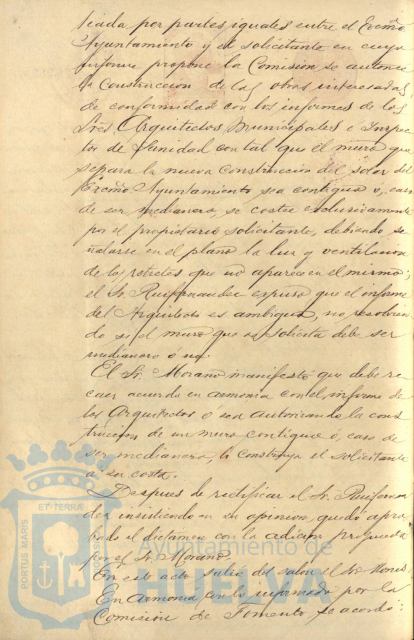 teada por partes iguales entre el Excmo
Ayuntamiento y el solicitante en cuyo
informe propone la Comisión se autorice
la construccion de las obras interesadas
de conformidad con los informes de los
Sres. Arquitectos Municipales e Inspec
tor de Sanidad con tal que el muro que
separa la nueva construccion del solar del
Excmo Ayuntamiento sea contiguo o, caso
de ser medianero, se costee exclusivamente
por el propietario solicitante, debiendo se
ñalarse en el plano la luz y ventilacion
de los retretes que no aparece en el mismo;
el Sr. Ruifernandez expuso que el informe
del Arquitecto es ambiguo, no resolvien
do si el muro que se solicita debe ser
medianero o no.
El Sr. Morano manifestó que debe re
caer acuerdo en armonia con el informe de
los Arquitectos o sea autorizando la cons
truccion de un muro contiguo o, caso de
ser medianero, lo construya el solicitante
a su costa.
Despues de rectificar el Sr. Ruifernan
dez insistiendo en su opinion, quedó apro
bado el dictamen con la adicion propuesta
por el Sr. Morano.
En este acto salio del salon el Sr. Mones.
En armonia con lo informado por la
Comision de Fomento se acordó:
PORTUS MARIS ET TERRÆ CUSTODIA
Ayuntamiento de
HUELVA